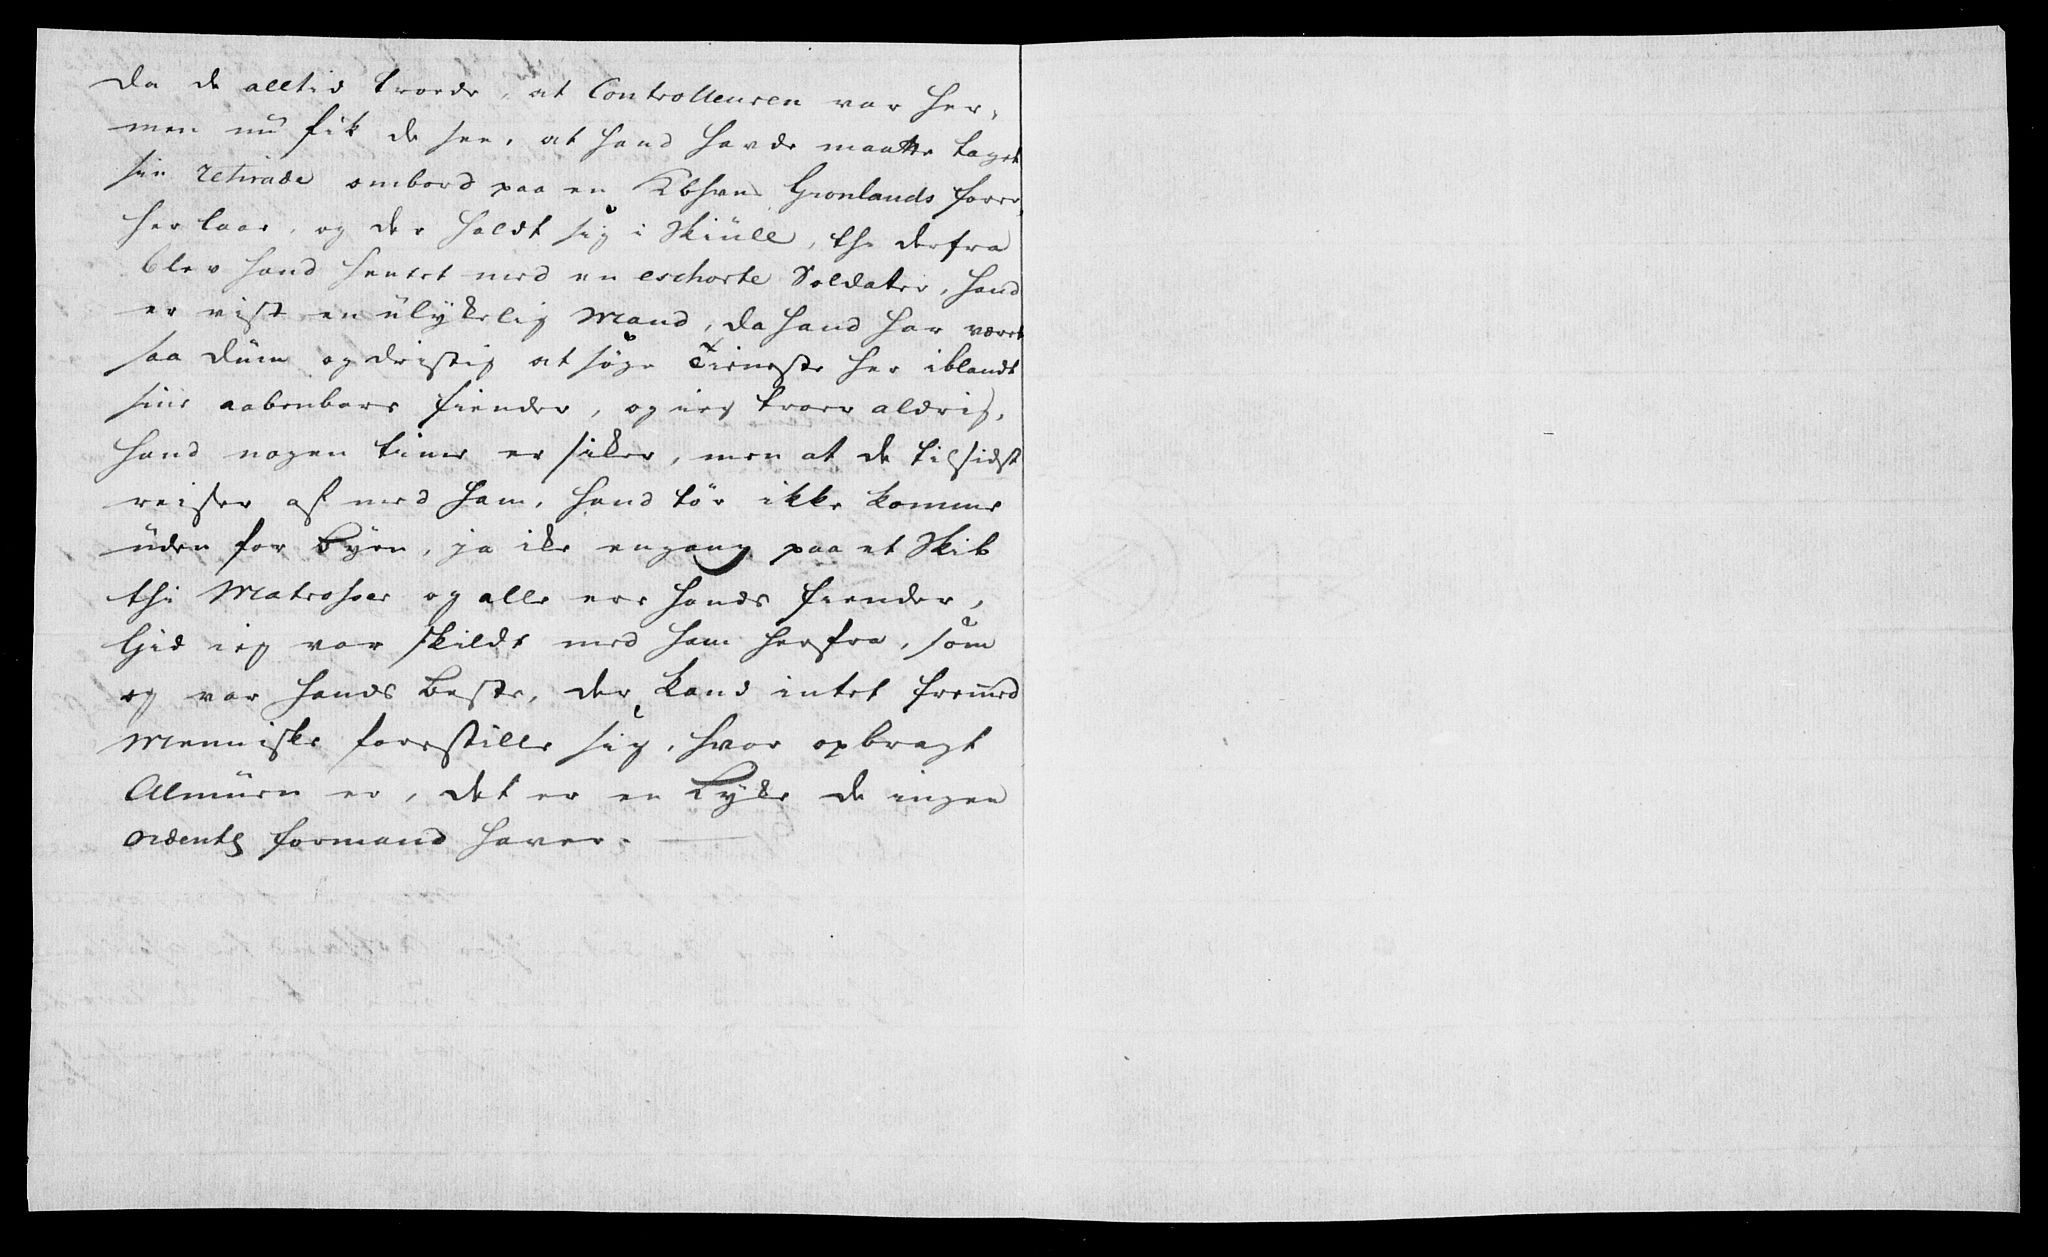 da de alltid troede, at Controlleuren var her,
men nu fik de see, at hand havde maatte taget
sin retirade ombord paa en Kbhvns Grønlands farer,
her laae, og der holdt sig i Skiull, thi derfra
blev hand hentet med en eschorte Soldater, hand
er vist en ulykelig Mand, da hand har været
saa dum og dristig at søge Tieneste her iblandt
sine aabenbare fiender, og ieg troer aldrig,
hand nogen time er siker, men at de tilsidst
reiser af med ham, hand tør ikke komme
uden for Byen, ja ike engang paa et Skib
thi Matroser og alle ere hands fiender,
Gid ieg var skildt med ham herfra, som
og var hands beste, der kand intet fremmed
Menniske forestille sig, hvor opbragt
Almuen er, det er en Lyke de ingen
ordentl formand haver.